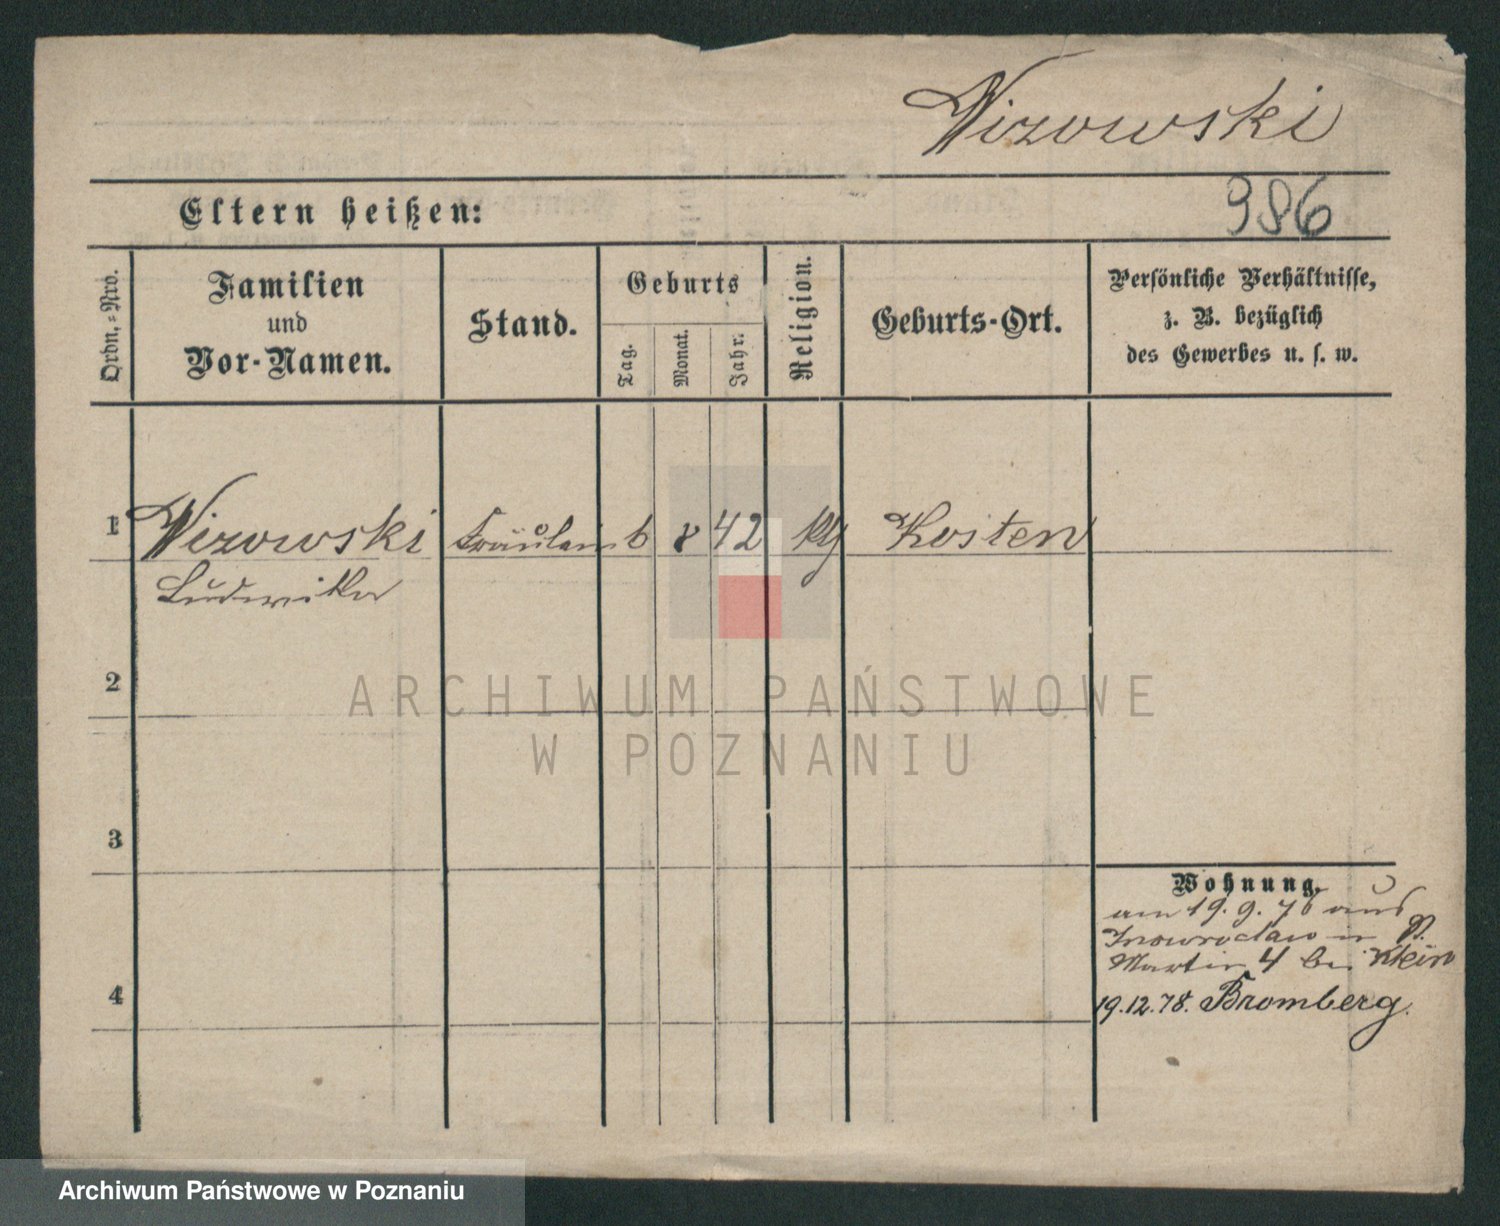 Wizowski
986
Eltern heißen:
Ordn.-Nro.
Familien
und
Vor-Namen.
Stand.
Geburts
Tag.
Monat.
Jahr.
Religion.
Geburts-Ort.
Persönliche Verhältnisse,
z. B. bezüglich
des Gewerbes u. s. w.
1
Wizowski Fräulein 6 8 42 kth Kosten
Ludwika
2
ARCHIWUM PAŃSTWOWE
W POZNANIU
3
Wohnung.
am 19. 9. 76 aus
Inowroclaw in St.
Martin 4 bei Klein
4
19.12.78. Bromberg.
Archiwum Państwowe w Poznaniu